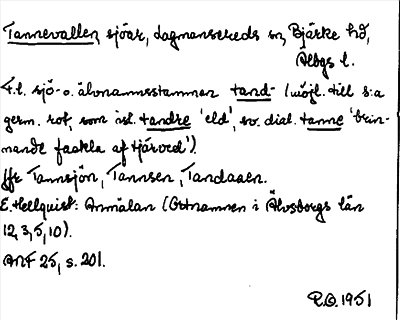 Tannevallen, sjöar, Dagmansereds sn, Bjärke hd,
Älvbgs l.
T.l. sjö- o. älvnamnsstammen tand- (möjl. till s:a
germ. rot, som isl. tandre 'eld', sv. dial. tanne 'brin-
nande fackla af tjärved').
Jfr Tannsjön, Tannsen, Tandaaen.
E. Hellquist: Anmälan (Ortnamnen i Älvsborgs län
12, 3, 5, 10).
ANF 25, s. 201.
1951